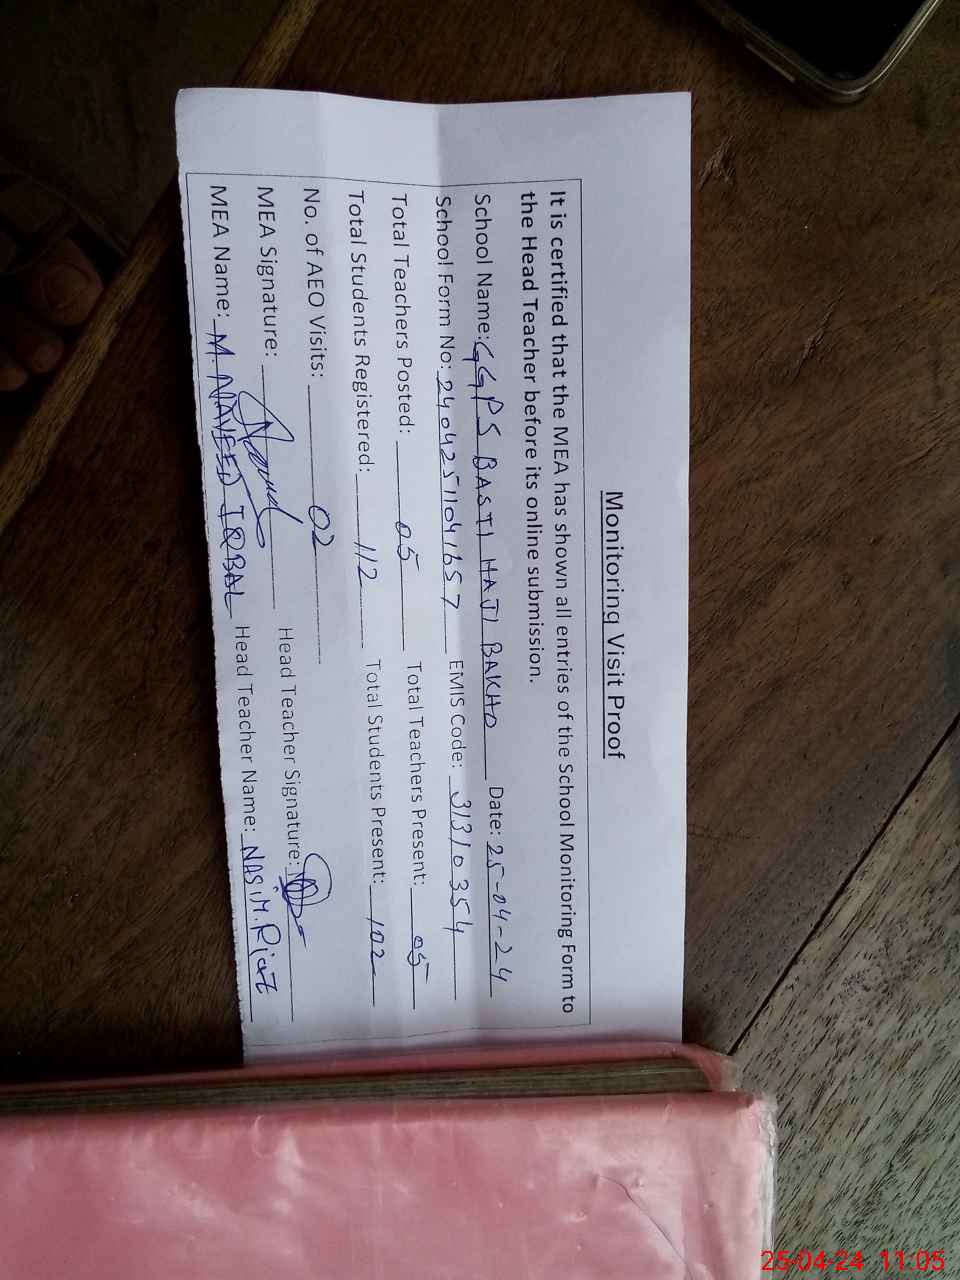 Monitoring Visit Proof
It is certified that the MEA has shown all entries of the School Monitoring Form to
the Head Teacher before its online submission.
School Name: GGPS BASTI HAJI BAKHO Date: 25-04-24
School Form No: 24042511041657 EMIS Code: 31310354
Total Teachers Posted: 05 Total Teachers Present: 05
Total Students Registered: 112 Total Students Present: 102
No. of AEO Visits: 02
MEA Signature: Head Teacher Signature:
MEA Name: M. NAVEED IQBAL Head Teacher Name: NASIM.
25-04-24 11:05